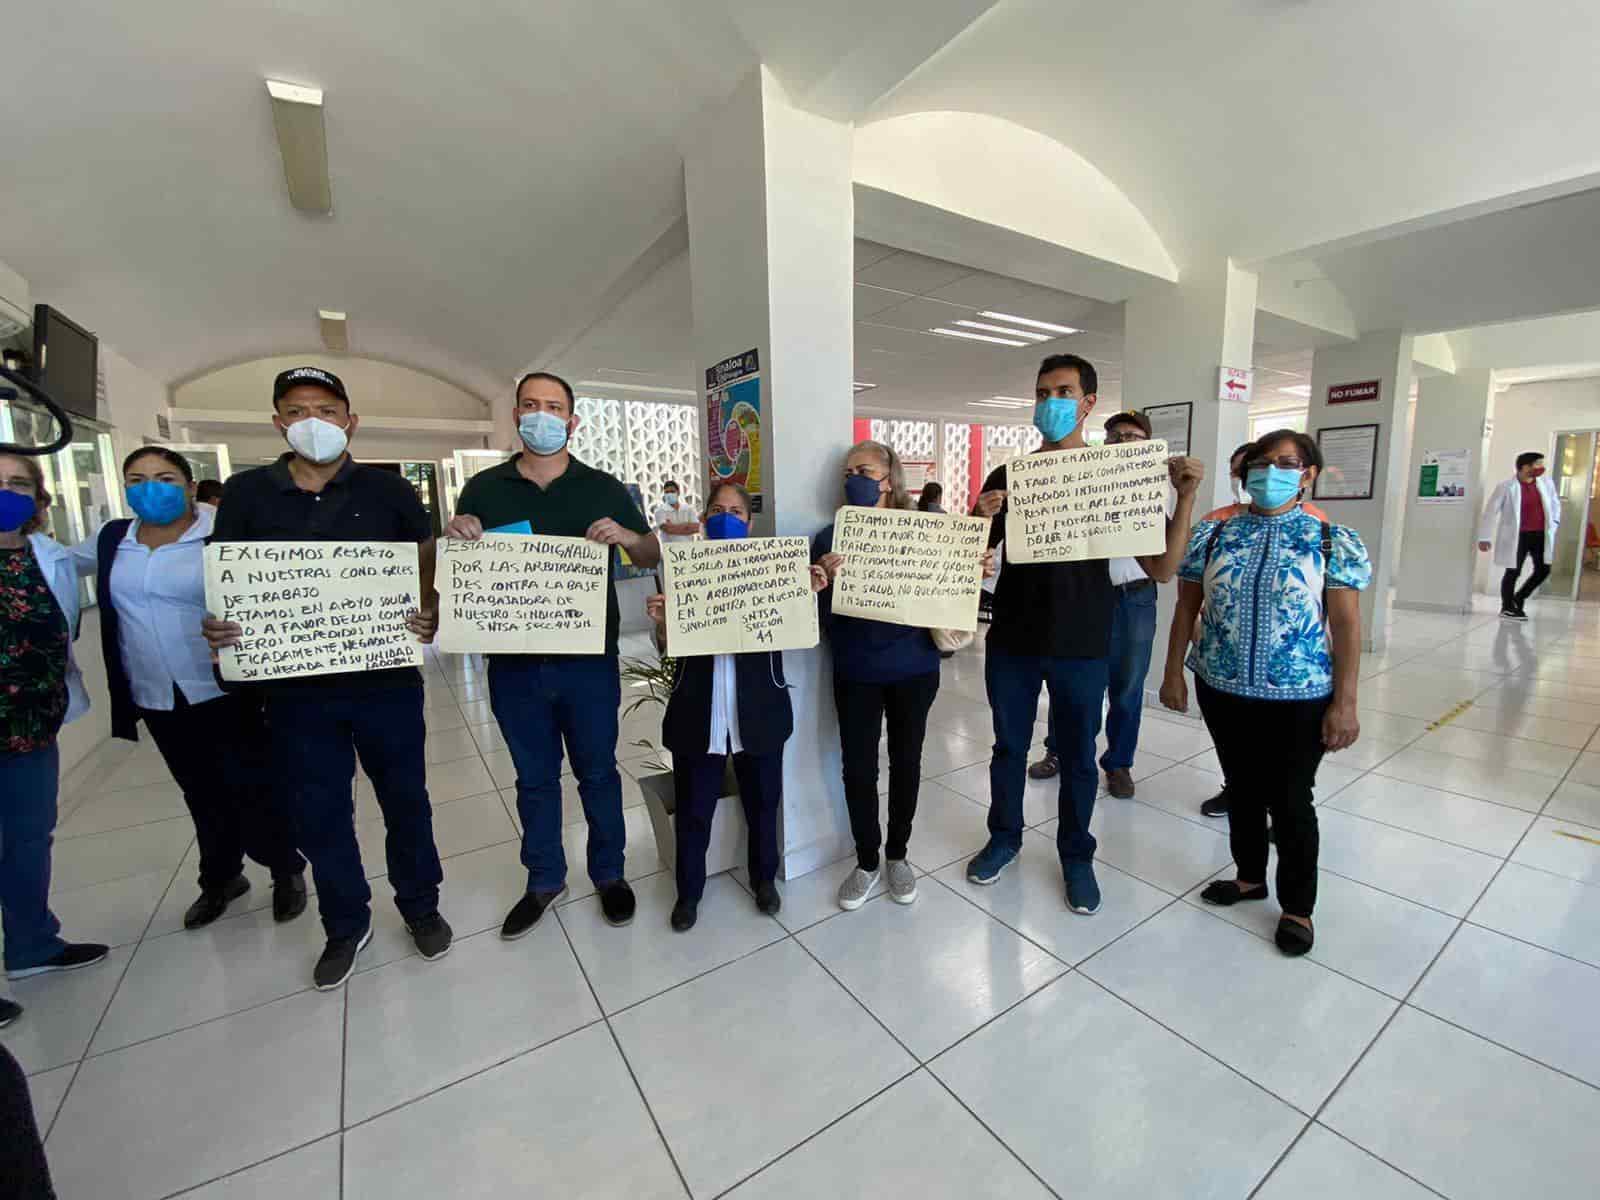 EXIGIMOS RESPETO
A NUESTRAS COND. GRLES
DE TRABAJO
ESTAMOS EN APOYO SOLIDA-
RIO A FAVOR DE LOS COMPA
ÑEROS DESPEDIDOS INJUSTI
FICADAMENTE, NEGANDOLES
SU CHECADA EN SU UNIDAD
LABORAL
ESTAMOS INDIGNADOS
POR LAS ARBITRARIEDA-
DES CONTRA LA BASE
TRABAJADORA DE
NUESTRO SINDICATO
SNTSA SECC. 44 SIN.
SR. GOBERNADOR, SR. SRIO
DE SALUD LAS TRABAJADORES
ESTAMOS INDIGNADOS POR
LAS ARBITRARIEDADES
EN CONTRA DE NUESTRO
SINDICATO SNTSA
SECCION
44
ESTAMOS EN APOYO SOLIDA-
RIO A FAVOR DE LOS COM-
PAÑEROS DESPEDIDOS INJUS-
TIFICADAMENTE POR ORDEN
DEL SR. GOBERNADOR Y/O SRIO.
DE SALUD, NO QUEREMOS MAS
INJUSTICIAS.
ESTAMOS EN APOYO SOLIDARIO
A FAVOR DE LOS COMPAÑEROS
DESPEDIDOS INJUSTIFICADAMENTE
"RESPETEN EL ART. 62 DE LA
LEY FEDERAL DE TRABAJA
DORES AL SERVICIO DEL
ESTADO
Sinaloa
NO FUMAR